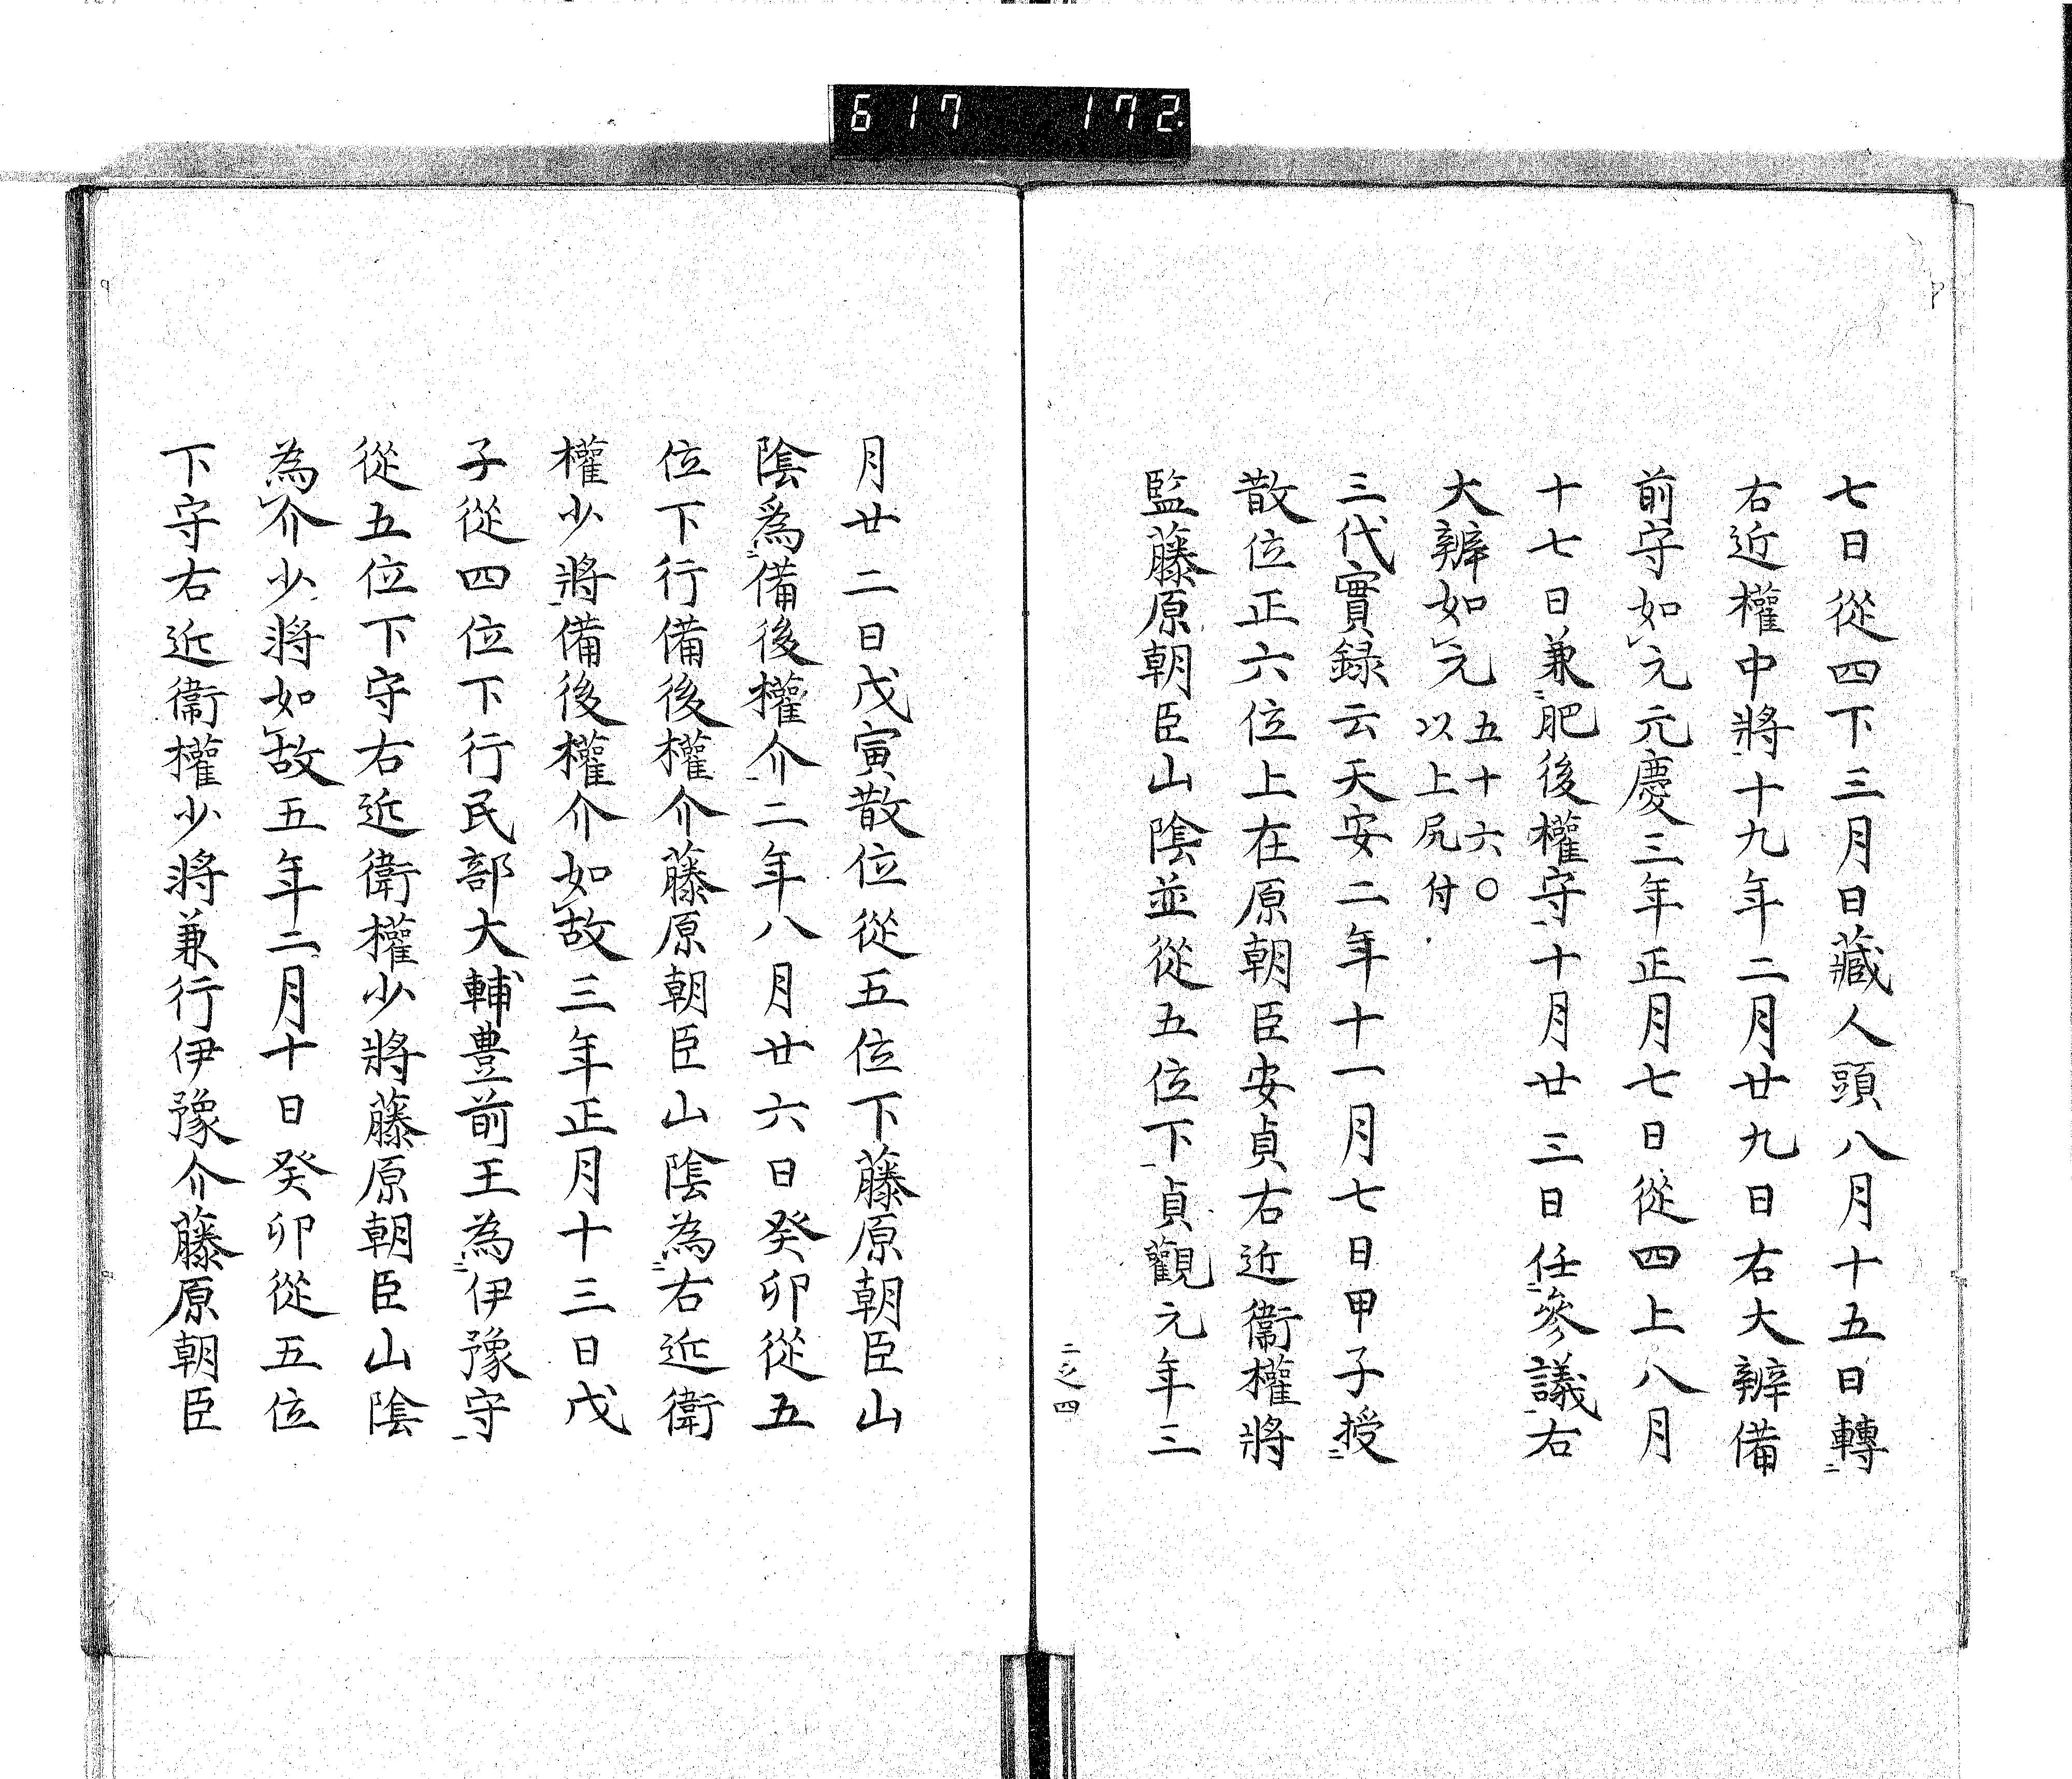 617 172.
七日從四下三月日藏人頭八月十五日轉
右近權中將十九年二月廿九日右大辨備
前守如元元慶三年正月七日從四上八月
十七日兼肥後權守十月廿三日任參議右
大辨如元五十六〇
以上尻付
三代實録云天安二年十一月七日甲子授
散位正六位上在原朝臣安貞右近衞權將
監藤原朝臣山陰並從五位下貞觀元年三
二之四
月廿二日戊寅散位從五位下藤原朝臣山
陰爲備後權介二年八月廿六日癸卯從五
位下行備後權介藤原朝臣山陰為右近衛
權少將備後權介如故三年正月十三日戊
子從四位下行民部大輔豊前王為伊豫守
從五位下守右近衛權少將藤原朝臣山陰
為介少將如故五年二月十日癸卯從五位
下守右近衞權少將兼行伊豫介藤原朝臣